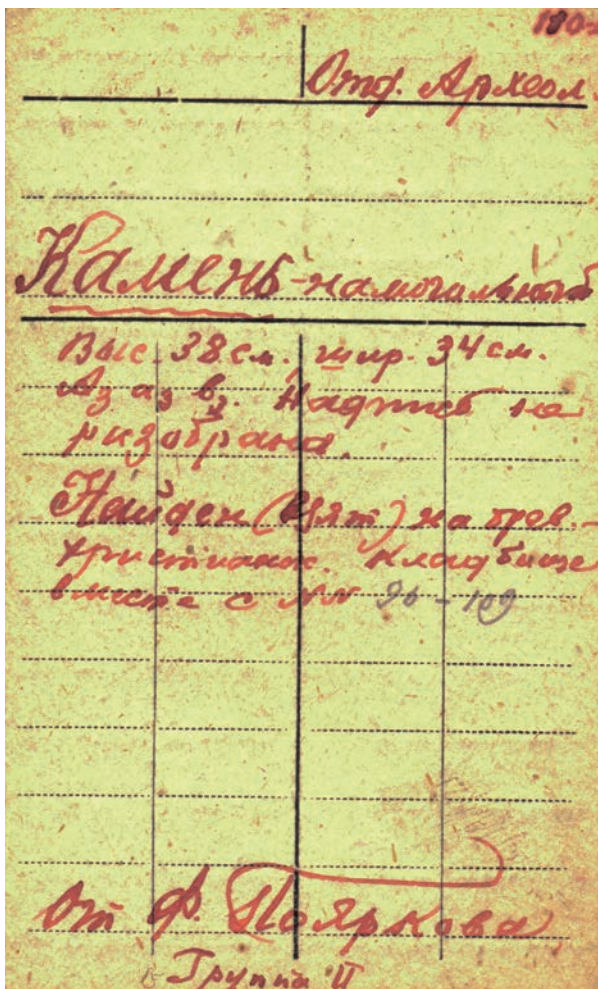 180
Отд. Археол.
Камень-намогильный
Выс. 38 см., шир. 34 см.
Надпись не
разобрана.
Найден (взят) на древ.-
христианск. кладбище
вместе с №№ 96-109
От Ф. Пояркова
Группа II